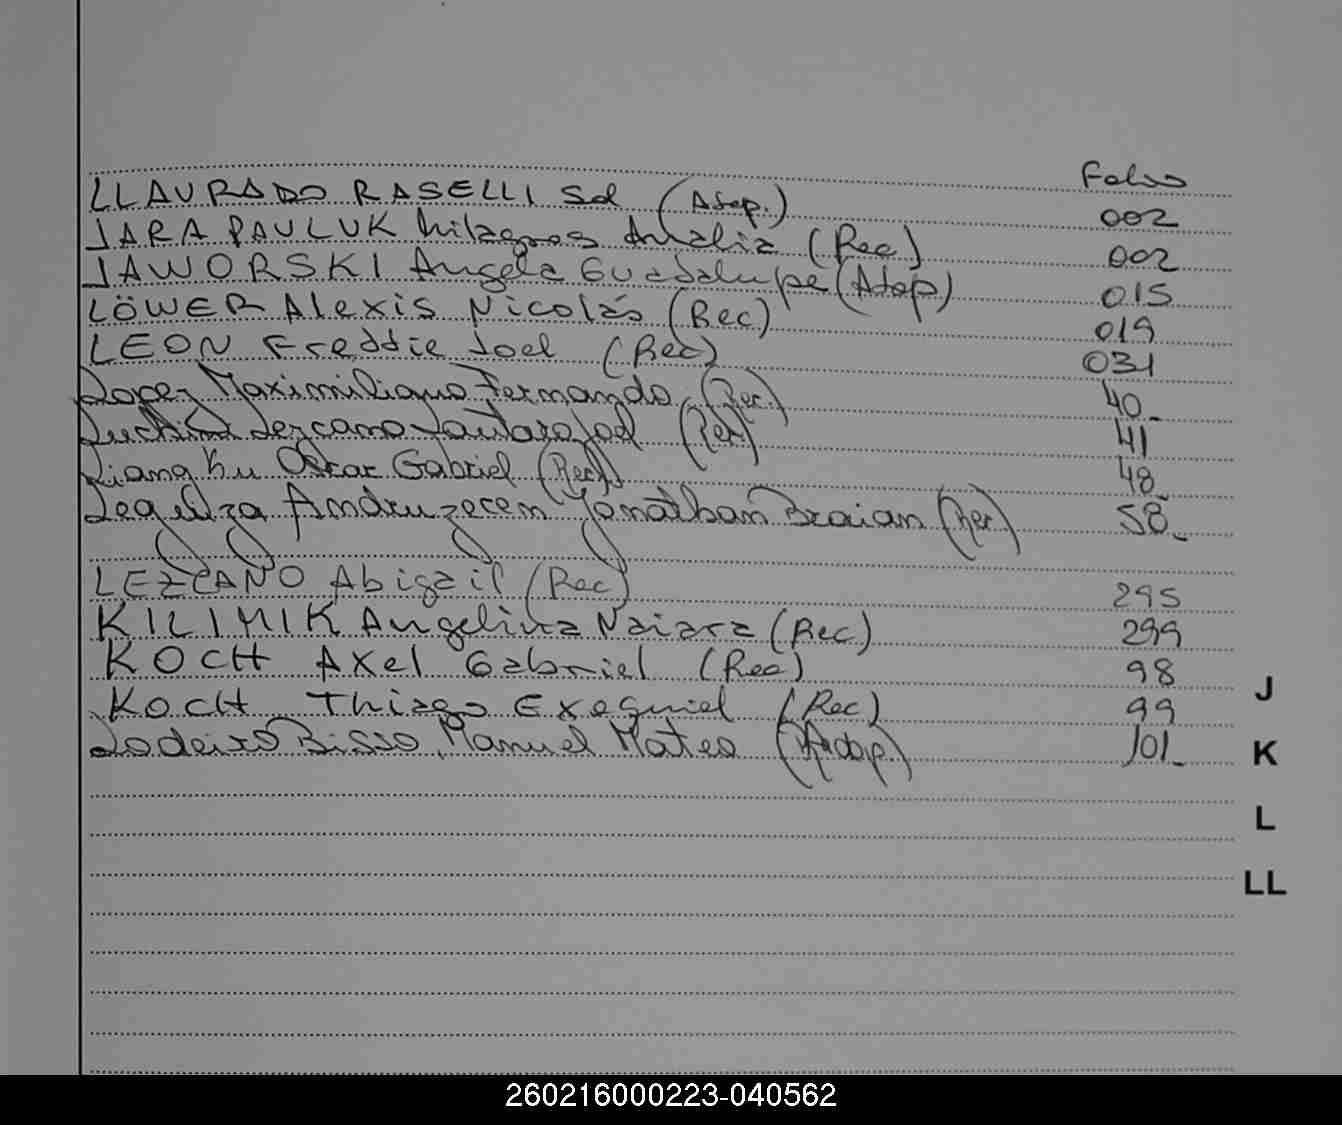 Folio
LLAURADO RASELLI Sol (Adop.) 002
JARA PAULUK Milagros Analia (Rec) 002
JAWORSKI Angela Guadalupe (Adop) 015
LÖWER Alexis Nicolás (Rec) 019
LEON Freddie Joel (Rec) 031
Lopez Maximiliano Fernando (Rec.) 40_
Luchini Lezcano Lautaro Joel (Rec) 41
Liang Ku Oscar Gabriel (Rec) 48_
Leguiza Andruzecen Jonathan Braian (Rec.) 58_
LEZCANO Abigail (Rec) 295
KILIMIK Angelina Naiara (Rec) 299
KOCH Axel Gabriel (Rec) 98
KOCH Thiago Exequiel (Rec) 99
Lodeiro Bisso, Manuel Mateo (Adop.) 101_
J
K
L
LL
260216000223-040562